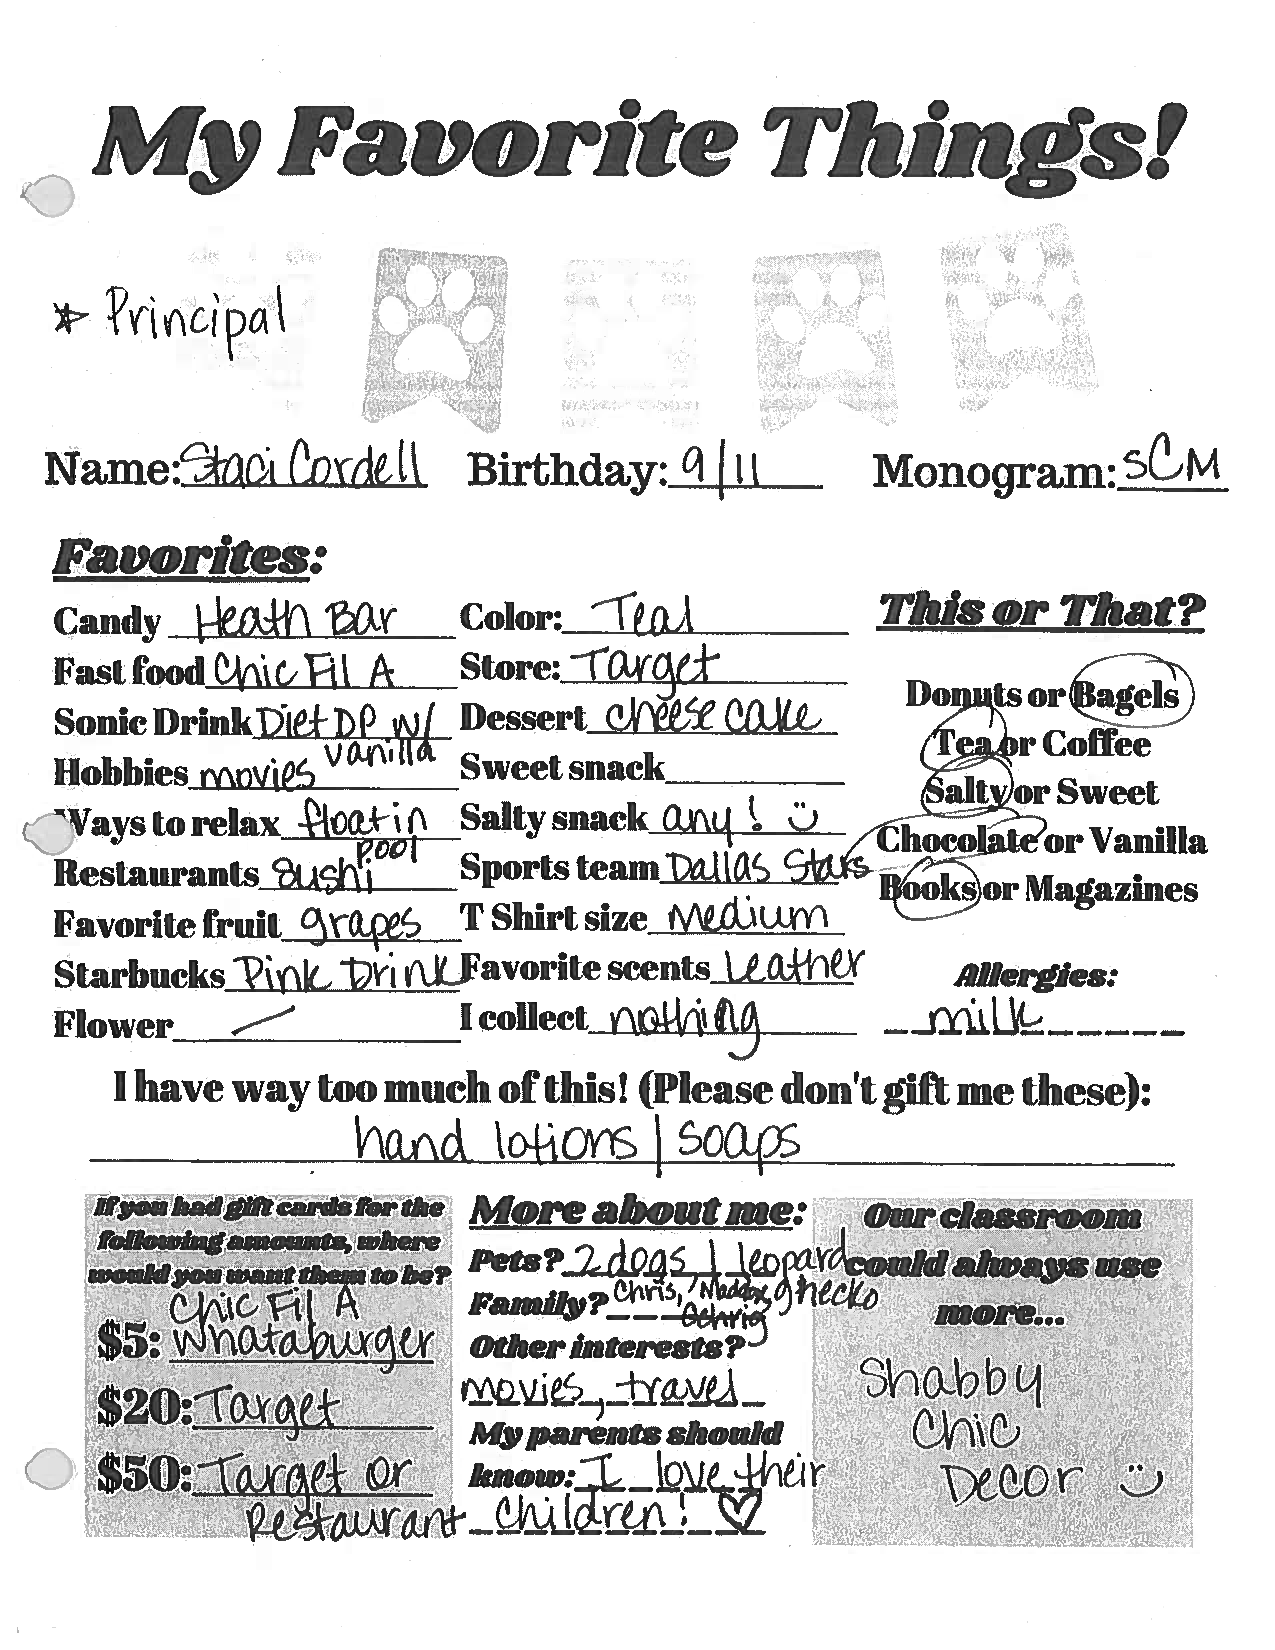 My Favorite Things!
* Principal
Name: Staci Cordell Birthday: 9/11 Monogram: SCM
Favorites:
Candy Heath Bar
Fast food Chic Fil A
Sonic Drink Diet DP w/
vanilla
Hobbies movies
Ways to relax float in
pool
Restaurants Sushi
Favorite fruit grapes
Starbucks Pink Drink
Flower —
Color: Teal
Store: Target
Dessert cheese cake
Sweet snack
Salty snack any! :)
Sports team Dallas Stars
T Shirt size Medium
Favorite scents Leather
I collect nothing
This or That?
Donuts or Bagels
Tea or Coffee
Salty or Sweet
Chocolate or Vanilla
Books or Magazines
Allergies:
milk
I have way too much of this! (Please don't gift me these):
hand lotions / soaps
If you had gift cards for the
following amounts, where
would you want them to be?
Chic Fil A
$5: Whataburger
$20: Target
$50: Target or
Restaurant
More about me:
Pets? 2 dogs 1 leopard
ghecko
Family? Chris, Maddox,
Gehrig
Other interests?
movies, travel
My parents should
know: I love their
children! ♡
Our classroom
could always use
more...
Shabby
Chic
Decor :)